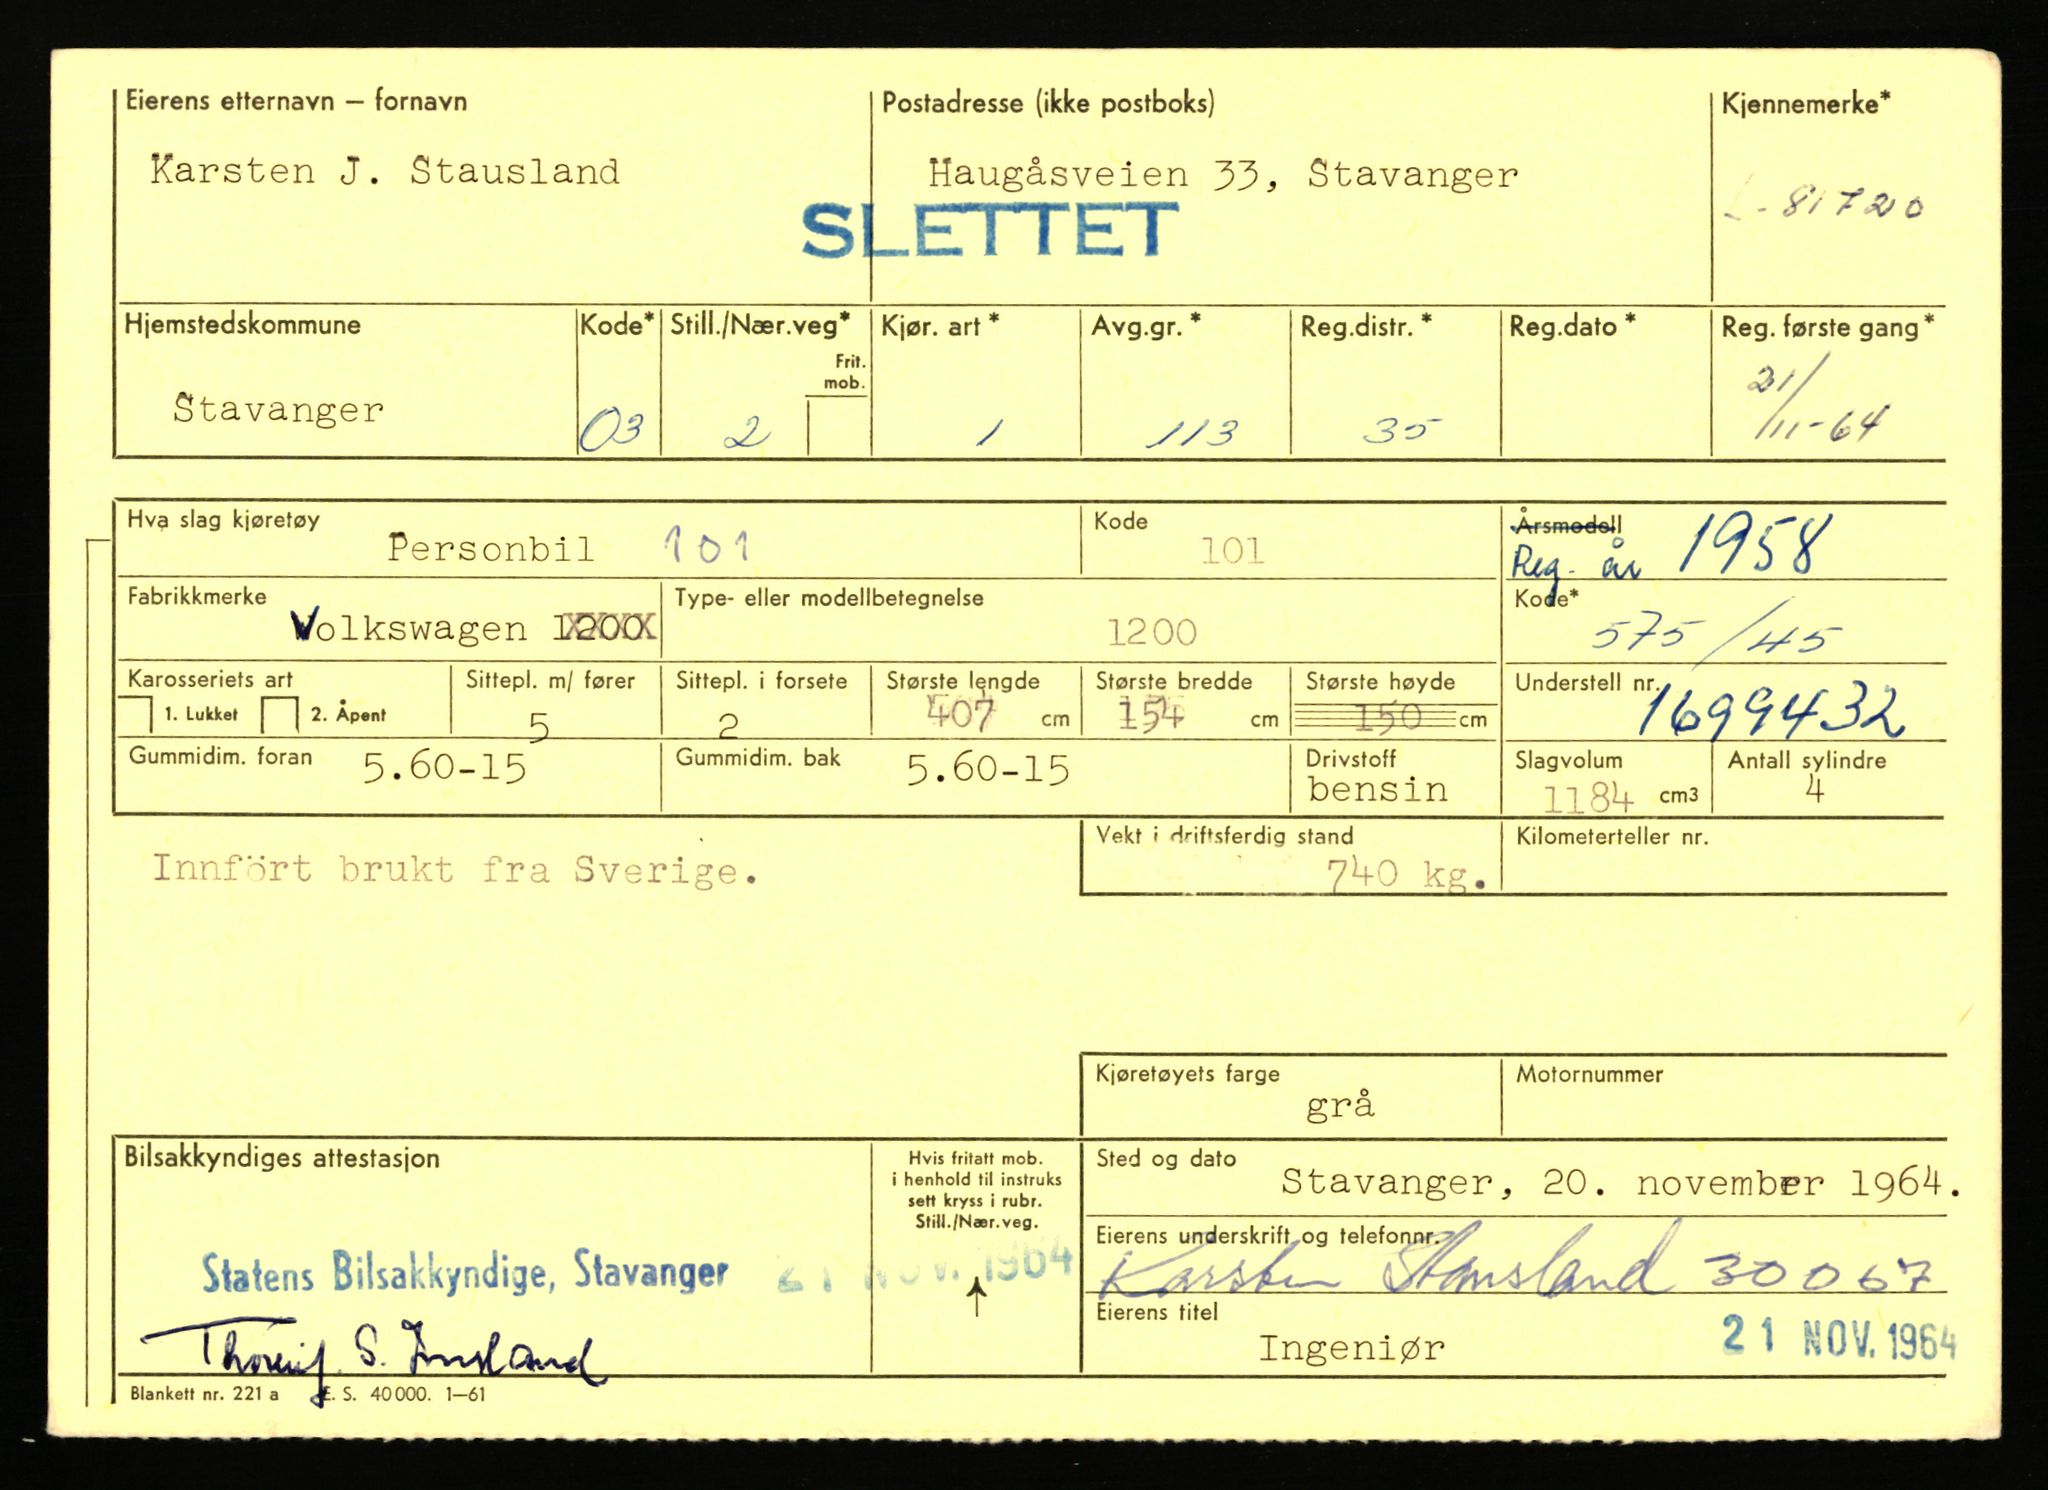 Eierens etternavn – fornavn
Postadresse (ikke postboks)
Kjennemerke*
Karsten J. Stausland
Haugåsveien 33, Stavanger
L-81720
SLETTET
Hjemstedskommune
Kode*
Still./Nær.veg*
Frit. mob.
Kjør. art *
Avg.gr. *
Reg.distr. *
Reg.dato *
Reg. første gang*
Stavanger
03
2
1
113
35
21/11-64
Hva slag kjøretøy
Personbil 101
Kode
101
Årsmodell
Reg. år 1958
Fabrikkmerke
Volkswagen 1200
Type- eller modellbetegnelse
1200
Kode*
575/45
Karosseriets art
1. Lukket 2. Åpent
Sittepl. m/ fører
5
Sittepl. i forsete
2
Største lengde
407 cm
Største bredde
154 cm
Største høyde
150 cm
Understell nr.
1699432
Gummidim. foran 5.60-15
Gummidim. bak 5.60-15
Drivstoff
bensin
Slagvolum
1184 cm3
Antall sylindre
4
Vekt i driftsferdig stand
740 kg.
Kilometerteller nr.
Innfört brukt fra Sverige.
Kjøretøyets farge
grå
Motornummer
Bilsakkyndiges attestasjon
Hvis fritatt mob.
i henhold til instruks
sett kryss i rubr.
Still./Nær.veg.
Sted og dato
Stavanger, 20. november 1964.
Statens Bilsakkyndige, Stavanger 21 NOV. 1964
Eierens underskrift og telefonnr.
Karsten Stausland 30067
Eierens titel
Ingeniør
21 NOV. 1964
S.
Blankett nr. 221 a E. S. 40000. 1–61